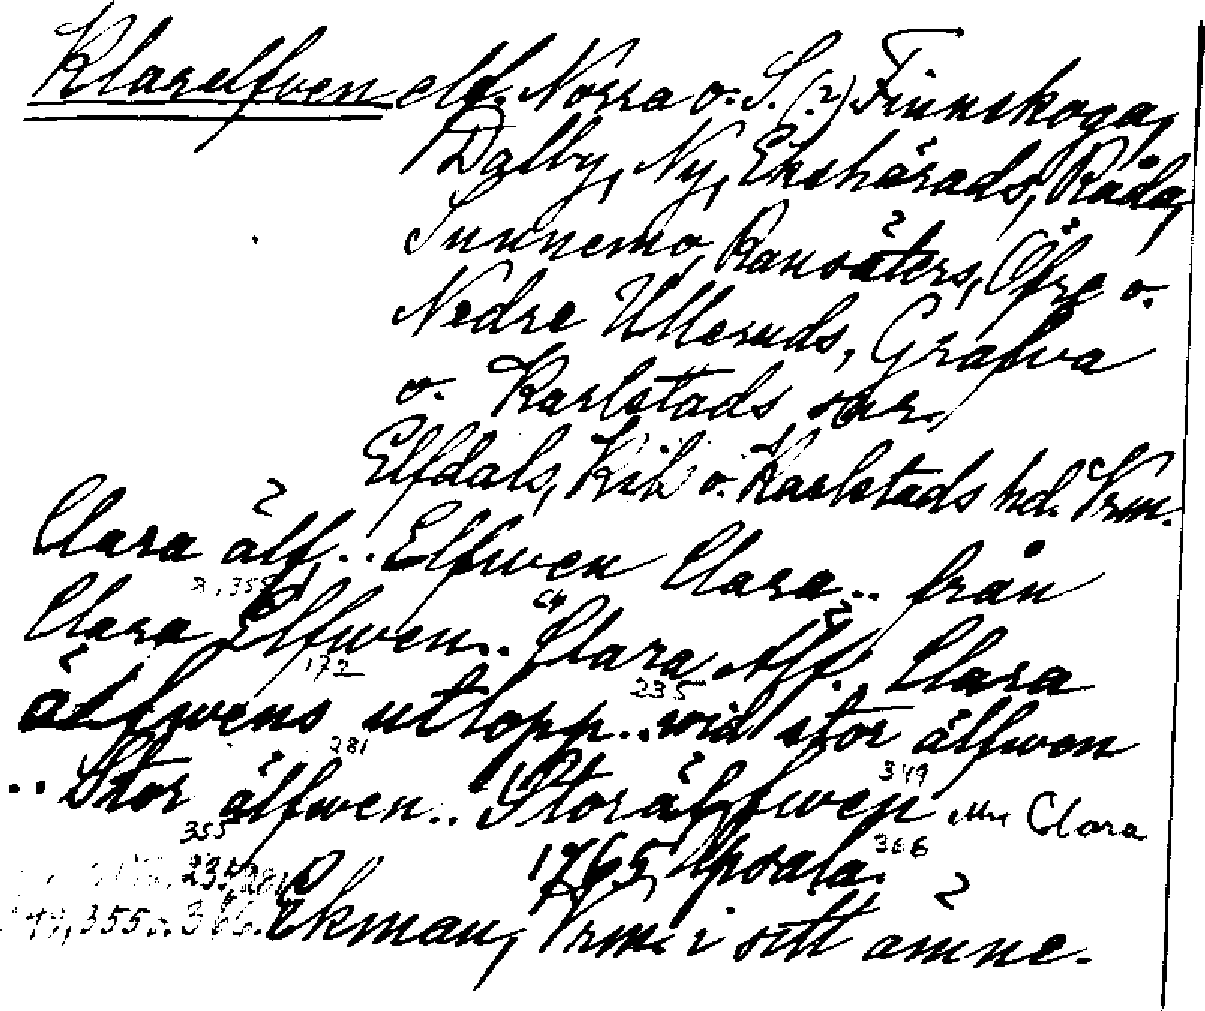 Klarelfven elf. Norra o. S. (?) Finnskoga,
Dalby, Ny, Ekshärads, Råda,
Sunnemo, Ransäters, Öfre o.
Nedre Ulleruds, Grafva
o. Karlstads snr.
Elfdals, Kils o. Karlstads hd. Vrm.
Clara älf... Elfwen Clara... från
Clara Elfwen... Clara Älf. Clara
172 235
älfwens utlopp... wid stor älfwen
281 349
.. Stor älfwen... Storälfwen Clara
355 366
235, 1765 Upsala.
49, 355 o. 366. Ekman, Vrm. i sitt ämne.